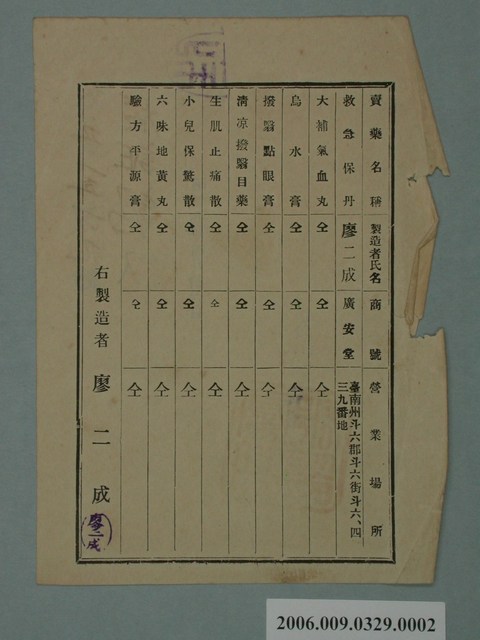 賣藥名稱 製造者氏名 商號 營業場所
救急保丹 廖二成 廣安堂 臺南州斗六郡斗六街斗六、四三九番地
大補氣血丸 仝 仝 仝
烏水膏 仝 仝 仝
撥翳點眼膏 仝 仝 仝
淸凉撥翳目藥 仝 仝 仝
生肌止痛散 仝 仝 仝
小兒保驚散 仝 仝 仝
六味地黃丸 仝 仝 仝
驗方平源膏 仝 仝 仝
右製造者 廖二成
廖二成
2006.009.0329.0002